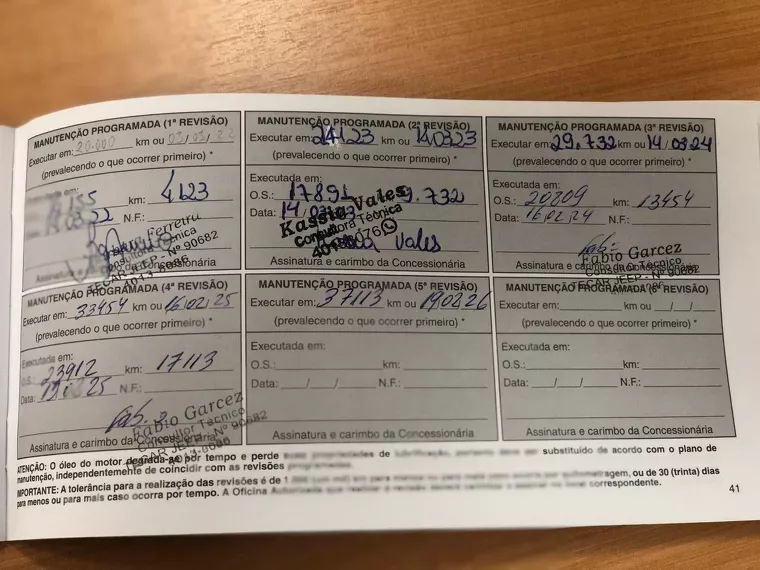 MANUTENÇÃO PROGRAMADA (1ª REVISÃO)
Executar em: 20.000 km ou 03/03/22
(prevalecendo o que ocorrer primeiro) *
km: 4123
N.F.:
Consultora Técnica
TECAR JEEP - Nº 90682
Assinatura e carimbo da Concessionária
MANUTENÇÃO PROGRAMADA (2ª REVISÃO)
Executar em: 24123 km ou 14.03.23
(prevalecendo o que ocorrer primeiro) *
Executada em:
O.S.: 17891 9.732
Data: 14
Kassia Vales
Consultora Técnica
Vales
Assinatura e carimbo da Concessionária
MANUTENÇÃO PROGRAMADA (3ª REVISÃO)
Executar em: 29.732 km ou 14/03/24
(prevalecendo o que ocorrer primeiro) *
Executada em:
O.S.: 20809 km: 13454
Data: 16/02/24 N.F.:
Fabio Garcez
Consultor Técnico
TECAR JEEP - Nº 90682
Assinatura e carimbo da Concessionária
MANUTENÇÃO PROGRAMADA (4ª REVISÃO)
Executar em: 33454 km ou 16/02/25
(prevalecendo o que ocorrer primeiro) *
Executada em:
O.S.: 23912 km: 17113
Data: 19 25 N.F.:
Fabio Garcez
Consultor Técnico
TECAR JEEP - Nº 90682
Assinatura e carimbo da Concessionária
MANUTENÇÃO PROGRAMADA (5ª REVISÃO)
Executar em: 37113 km ou 19.02.26
(prevalecendo o que ocorrer primeiro) *
Executada em:
O.S.: km:
Data: __/__/__ N.F.:
Assinatura e carimbo da Concessionária
MANUTENÇÃO PROGRAMADA (6ª REVISÃO)
Executar em: km ou __/__/__
(prevalecendo o que ocorrer primeiro) *
Executada em:
O.S.: km:
Data: __/__/__ N.F.:
Assinatura e carimbo da Concessionária
ATENÇÃO: O óleo do motor degrada-se por tempo e perde substituído de acordo com o plano de
manutenção, independentemente de coincidir com as revisões
IMPORTANTE: A tolerância para a realização das revisões é de ou de 30 (trinta) dias
para menos ou para mais caso ocorra por tempo. A Oficina correspondente.
41